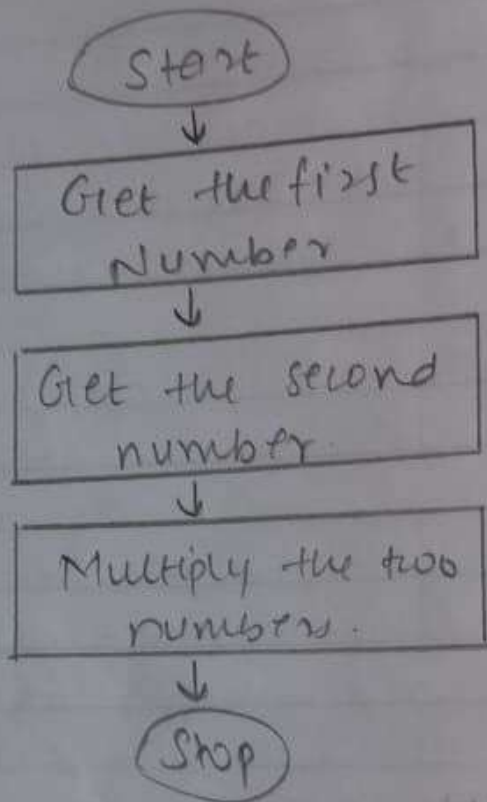 Start
Get the first
Number
Get the second
number.
Multiply the two
numbers.
Stop